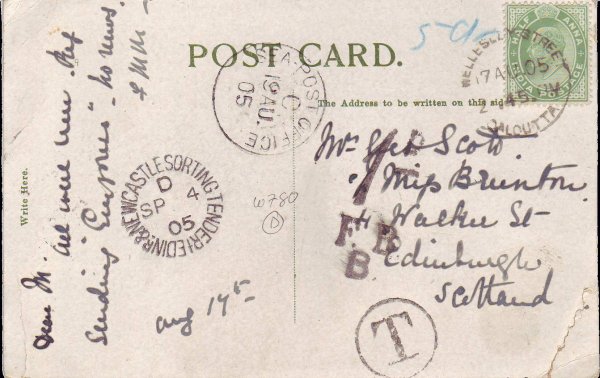 POST CARD.
The Address to be written on this side
Write Here.
Dear M. All well here. Am
sending "Empress" - no news.
Aug 17th
Scott
c/o Miss Brunton
4 Walker St
Edinburgh
Scotland
HALF ANNA
INDIA POSTAGE
WELLESLEY STREET
17 AU 05
CALCUTTA
SEA POST OFFICE
C
19 AU
05
EDINR & NEWCASTLE SORTING TENDER
D
SP 4
05
W780
D
F B
B
T